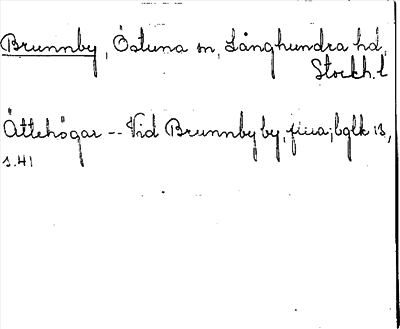 Brunnby, Östuna sn, Långhundra hd,
Stockh. l
Ättehögar -- Vid Brunnby by, finna; bglk 13,
s. 41